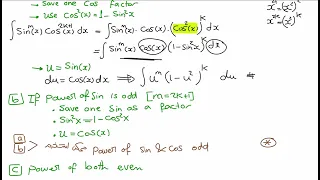 Save one Cos factor
x^{2k} = (x^2)^k
• use Cos²(x) = 1 - Sin²x
∫ Sin^m(x) Cos^{2k+1}(x) dx = ∫ Sin^m(x) · Cos(x) · (Cos²(x))^k dx
= ∫ Sin^m(x) Cos(x) (1 - Sin²x)^k dx
• u = Sin(x)
du = Cos(x) dx ⟹ ∫ u^m (1 - u²)^k du
b If Power of Sin is odd [m = 2k+1]
• Save one Sin as a factor
• Sin²x = 1 - Cos²x
• u = Cos(x)
a
b
Power of Sin & Cos odd
*
C Power of both even